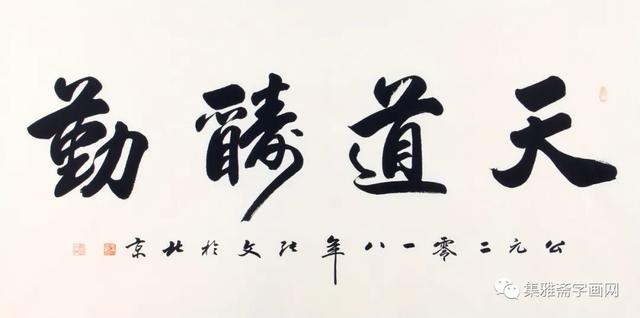 天道酬勤
公元二零一八年张文於北京
集雅斋字画网